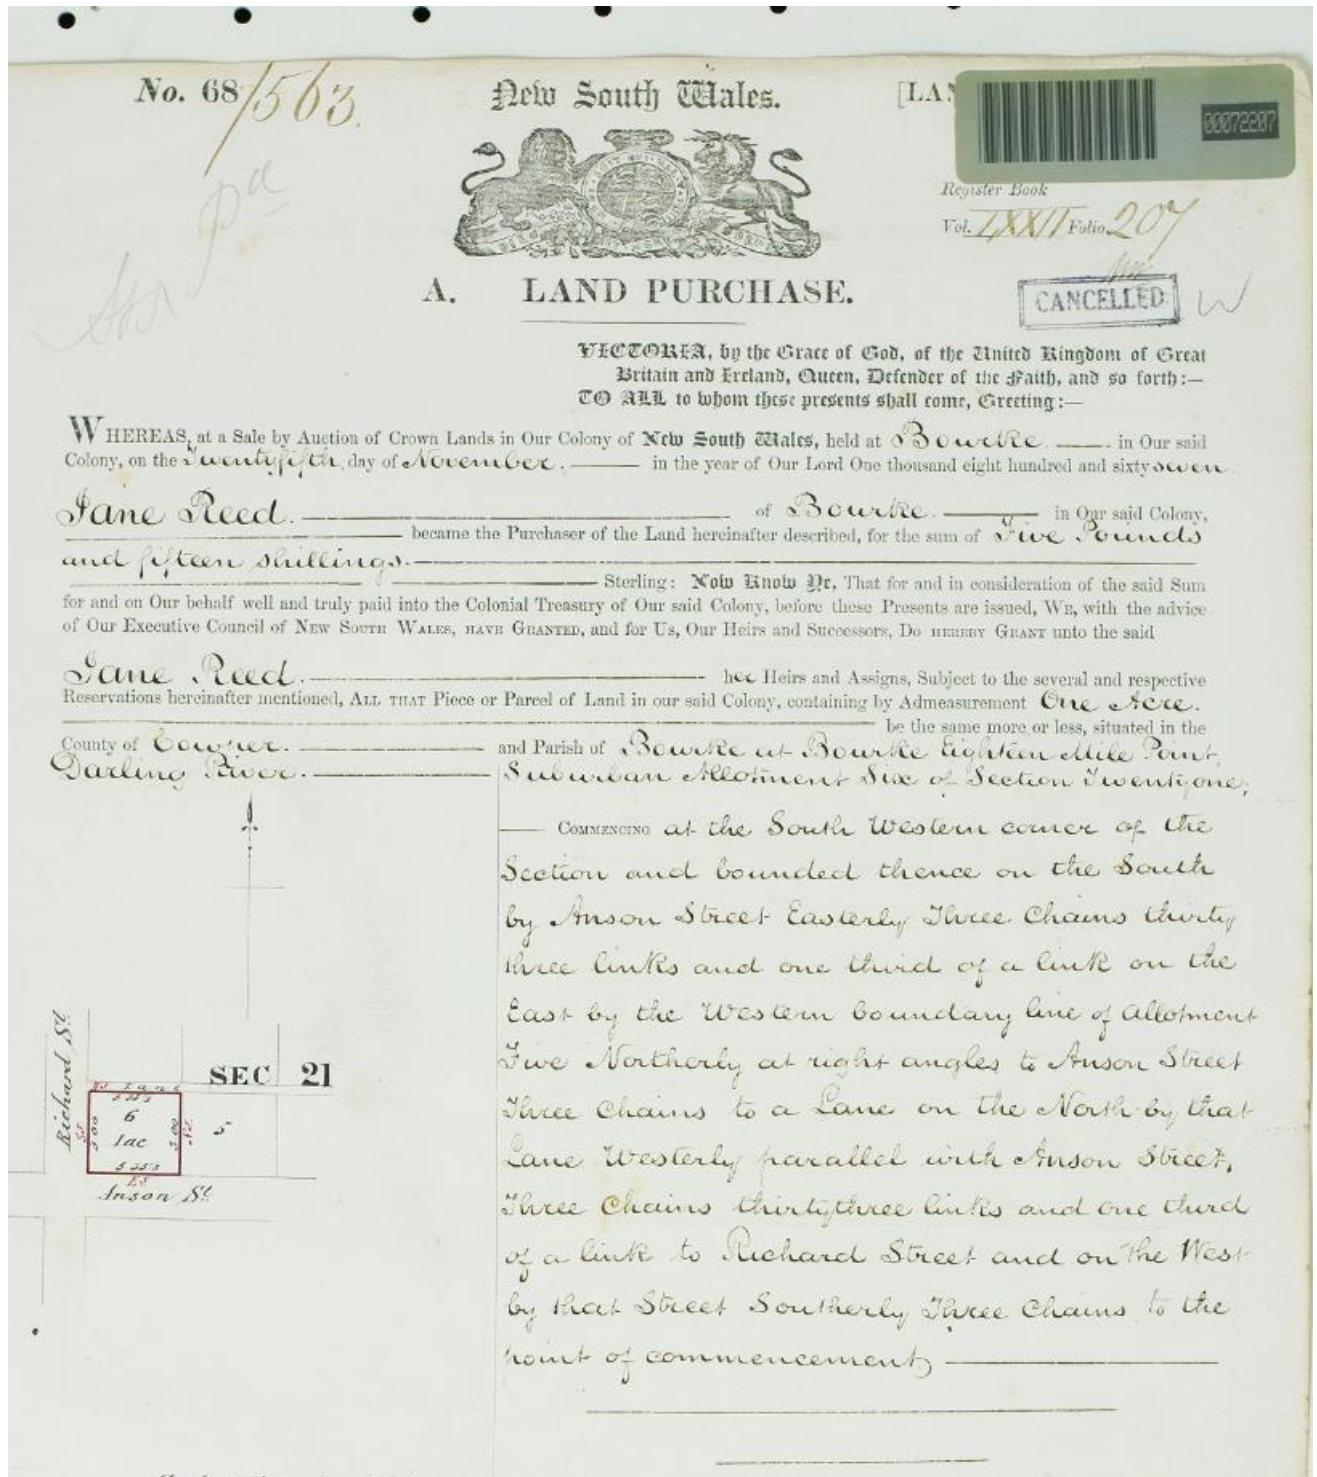 No. 68/563.
New South Wales.
[LAN
00072207
Register Book
Vol. LXXII Folio 207
A. LAND PURCHASE.
CANCELLED
VICTORIA, by the Grace of God, of the United Kingdom of Great
Britain and Ireland, Queen, Defender of the Faith, and so forth:—
TO ALL to whom these presents shall come, Greeting:—
WHEREAS, at a Sale by Auction of Crown Lands in Our Colony of New South Wales, held at Bourke in Our said
Colony, on the Twentyfifth day of November. in the year of Our Lord One thousand eight hundred and sixty seven
Jane Reed. of Bourke. in Our said Colony,
became the Purchaser of the Land hereinafter described, for the sum of Five Pounds
and fifteen shillings.
Sterling: Now Know Ye, That for and in consideration of the said Sum
for and on Our behalf well and truly paid into the Colonial Treasury of Our said Colony, before these Presents are issued, WE, with the advice
of Our Executive Council of NEW SOUTH WALES, HAVE GRANTED, and for Us, Our Heirs and Successors, DO HEREBY GRANT unto the said
Jane Reed. her Heirs and Assigns, Subject to the several and respective
Reservations hereinafter mentioned, ALL THAT Piece or Parcel of Land in our said Colony, containing by Admeasurement One Acre.
be the same more or less, situated in the
County of Cowper. and Parish of Bourke at Bourke Eighteen Mile Point,
Darling River. Suburban Allotment Six of Section Twentyone,
COMMENCING at the South Western corner of the
Section and bounded thence on the South
by Anson Street Easterly Three Chains thirty
three links and one third of a link on the
East by the Western boundary line of allotment
Five Northerly at right angles to Anson Street
Three Chains to a Lane on the North by that
Lane Westerly parallel with Anson Street,
Three Chains thirtythree links and one third
of a link to Richard Street and on the West
by that Street Southerly Three Chains to the
point of commencement,
Richard St.
SEC 21
Lane
6
1ac
5
Anson St.